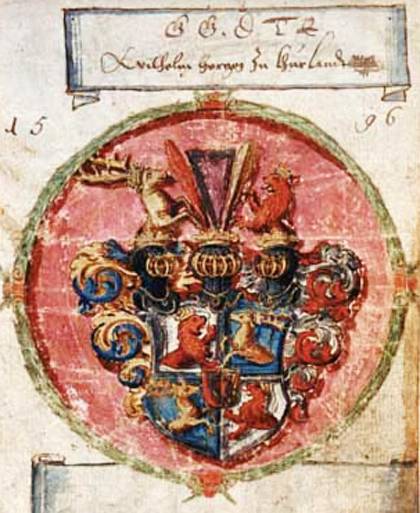 G G. D T R
Wilhelm herzog Zu Churlandt
15 96